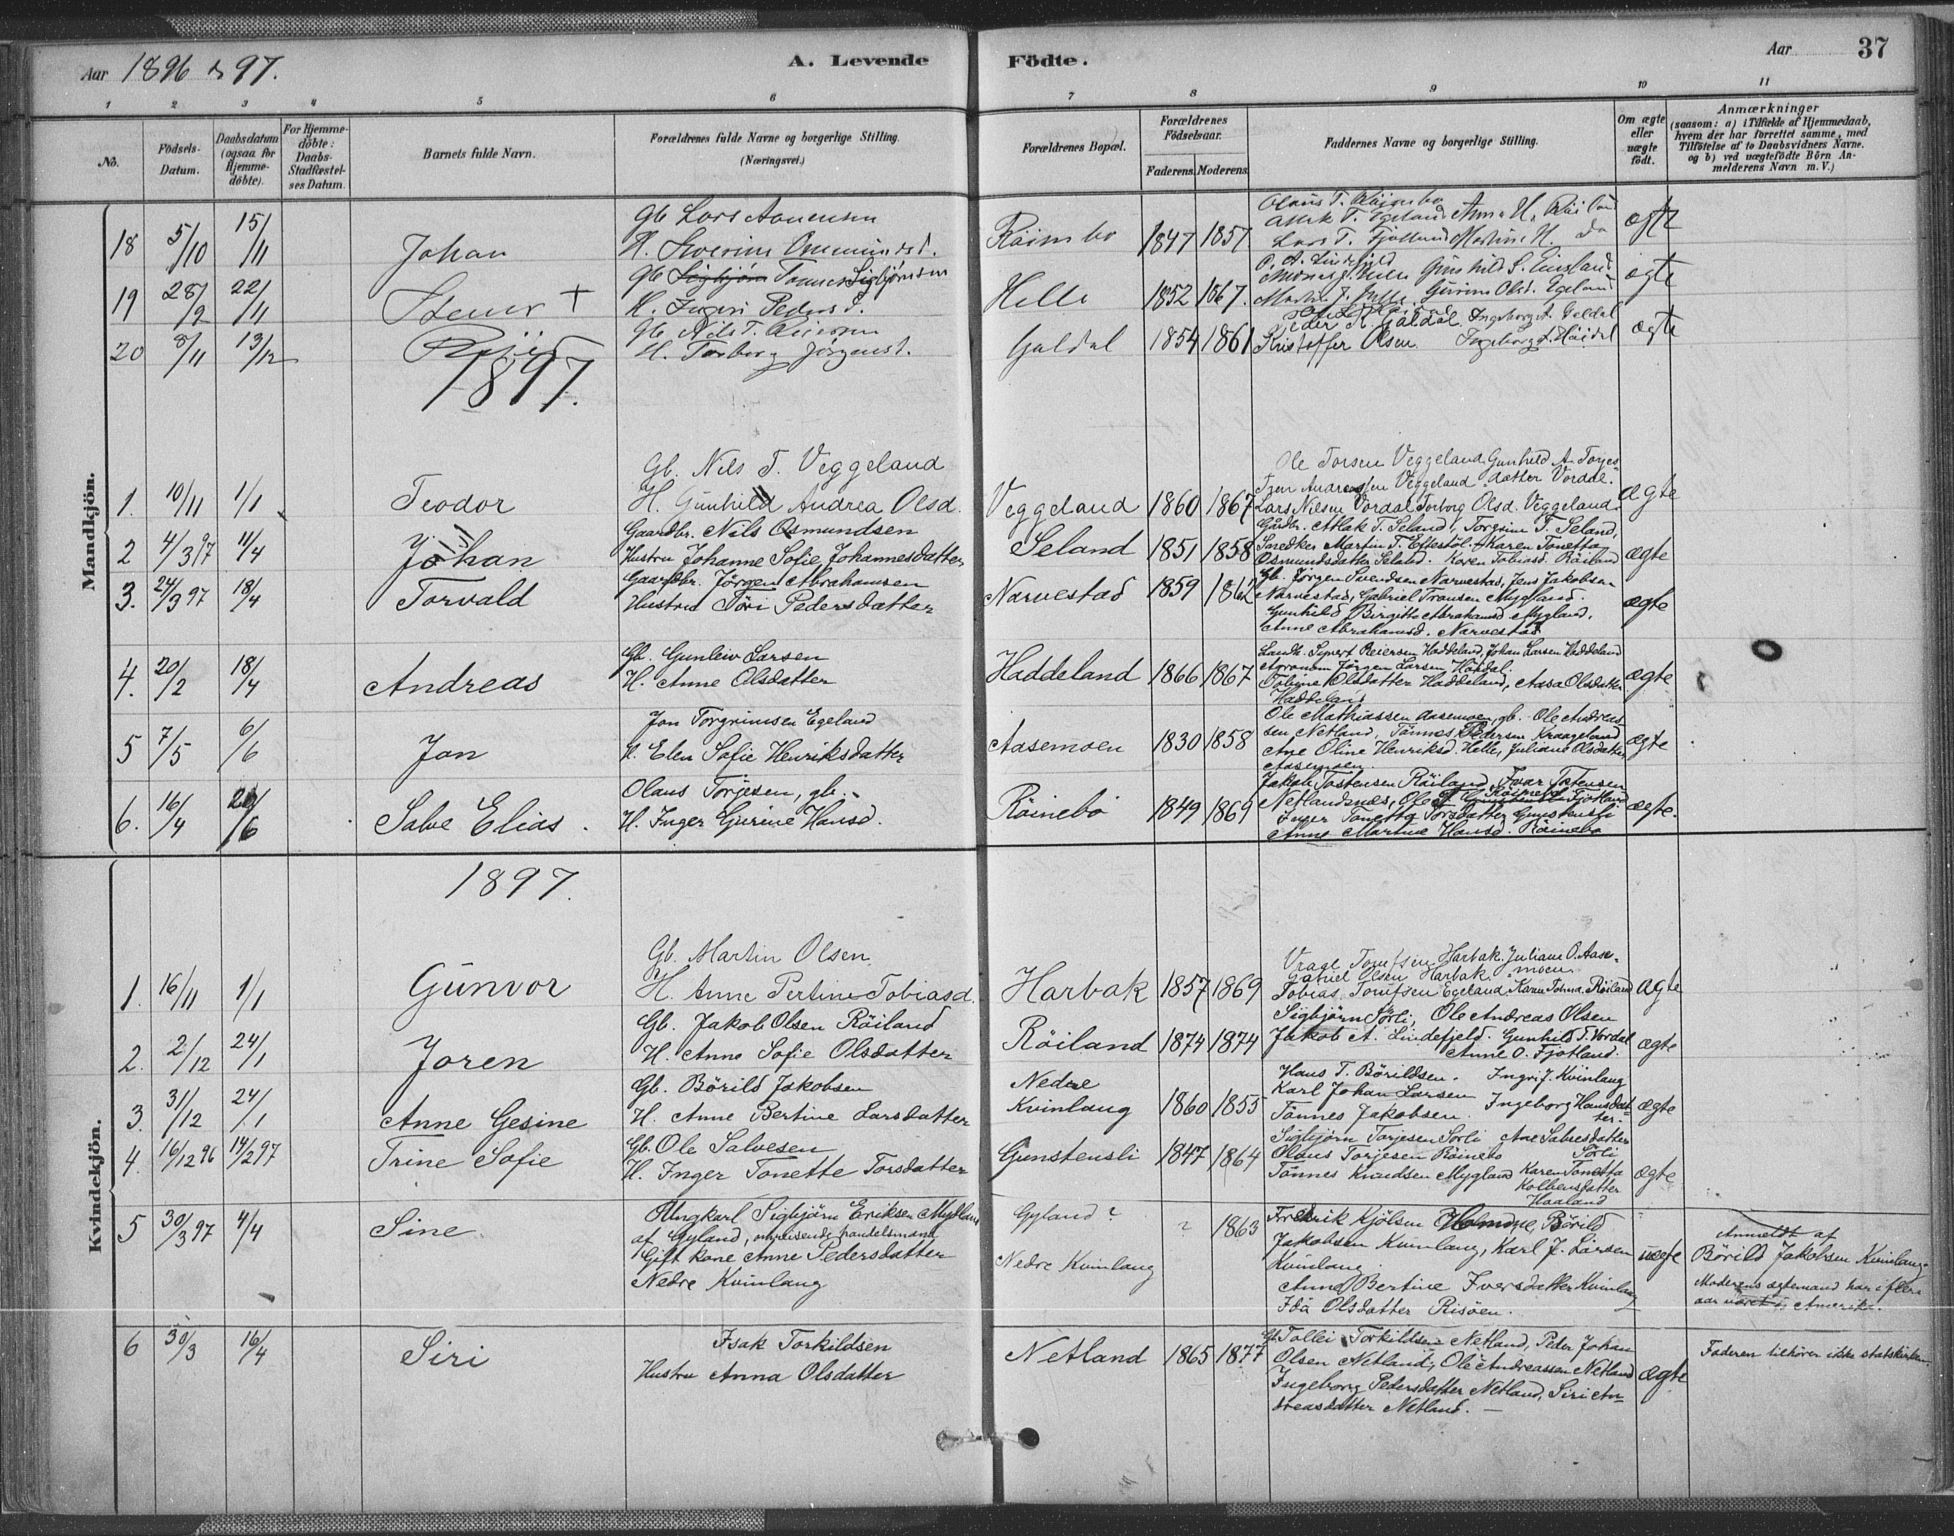 Aar 1896 & 97.
A. Levende Födte.
Aar 37
1 2 3 4 5 6 7 8 9 10 11
No.
Födsels-Datum.
Daabsdatum (ogsaa for Hjemme-döbte).
For Hjemme-döbte: Daabs-Stadfæstel-ses Datum.
Barnets fulde Navn.
Forældrenes fulde Navne og borgerlige Stilling. (Næringsvei.)
Forældrenes Bopæl.
Forældrenes Födselsaar.
Faderens. Moderens.
Faddernes Navne og borgerlige Stilling.
Om ægte eller uægte födt.
Anmærkninger
(saasom: a) i Tilfælde af Hjemmedaab, hvem der har forrettet samme, med Tilföielse af to Daabsvidners Navne. og b) ved uægtefödte Börn An-melderens Navn m. V.)
Mandkjön.
18 5/10 15/11 Johan
Gb Lars Aanensen
H. Severine Ommundsd.
Röinebo 1847 1857
ægte
19 28/9 22/11 Stener +
Gb Sigbjörn Tønnes Sigbjörnsen
H. Ingeri Pedersd.
Helle 1852 1867.
ægte
20 8/11 13/12
Gb Nils T. Reiersen
H. Torborg Jørgensd.
Galdal 1854 1861
Peder K Galdal. Ingeborg A. Galdal
Kristoffer Olsen Ingeborg
ægte
1897.
1. 10/11 1/1 Teodor
Gb. Nils T. Veggeland
H. Gunhild Andrea Olsd.
Veggeland 1860 1867
Ole Torsen Veggeland Gunhild A. Torjes-
Tjen Andreassen Veggeland datter Vordal.
Lars Nilsen Vordal Torborg Olsd. Veggeland
ægte
2 4/3 97 11/4 Johan
Gaardbr. Nils Osmundsen
Hustru Johanne Sofie Johannesdatter
Seland 1851 1858
Gårdbr. Atlak T. Seland, Torgrim T. Seland,
Snedker Martin T. Eftestöl. Karen Tonetta
Osmundsdatter Seland. Karen Tobiasd. Röiland
ægte
3. 24/3 97 18/4 Torvald
Gaardbr. Jörgen Abrahamsen
Hustru Töri Pedersdatter
Narvestad 1859 1862
Gb. Jörgen Svendsen Narvestad, Jens Jakobsen
Narvestad, Gabriel Tronsen Mygland.
Gunhild Birgitte Abrahamsd Mygland.
Anne Abrahamsd. Narvestad
ægte
4. 20/2 18/4 Andreas
Gb. Gunleiv Larsen
H. Anne Olsdatter
Haddeland 1866 1867
Landh. Sivert Reiersen Haddeland, Johan Larsen Haddeland
Agronom Jörgen Larsen Høidal.
Tobine Olsdatter Haddeland, Aasa Olsdatter
Haddeland
ægte
5 7/5 6/6 Jon
Jon Torgrimsen Egeland
H. Elen Sofie Henriksdatter
Aasemoen 1830 1858
Ole Mathiassen Aasemoen, gb. Ole Andreas-
sen Netland, Tönnes Pedersen Kraageland
Ane Oline Henriksd. Helle, Juliane Olsdatter
Aasemoen.
ægte
6. 16/4 20/6 Salve Elias.
Olaus Torjesen, gb.
H. Inger Gurine Hansd.
Röinebö 1849 1869
Jakob Tostensen Röiland, Ivar Tostensen
Netlandsnes, Ole
Inger Tonetta Torsdatter Gunstensli
Anne Martine Hansd. Röinebö
ægte.
Kvindekjön.
1897.
1. 16/11 1/1 Gunvor
Gb. Martin Olsen
H. Anne Pertine Tobiasd.
Harbak 1857 1869
Harbak. Juliane O. Aase-
Gabriel Olsen Harbak. moen.
Tobias Torufsen Egeland. Karen Tobine Röiland
ægte
2. 2/12 24/1 Joren
Gb. Jakob Olsen Röiland
H. Anne Sofie Olsdatter
Röiland 1874 1874
Sigbjörn Sörli, Ole Andreas Olsen
Jakob A. Lindefjeld. Gunhild T. Vordal
Anne O. Fjotland.
ægte
3. 31/12 24/1 Anne Gesine
Gb. Börild Jakobsen
H. Anne Bertine Larsdatter
Nedre Kvinlaug 1860 1855
Hans T. Börildsen. Ingri J. Kvinlaug
Karl Johan Larsen Ingeborg Hansdat-
Tönnes Jakobsen. ter.
ægte
4. 16/12 96 14/2 97 Trine Sofie
Gb. Ole Salvesen
H. Inger Tonette Torsdatter
Gunstensli 1847 1864
Sigbjörn Torjesen Sörli Ane Salvesdatter
Olaus Torjesen Röinebö Sörli
Tönnes Knudsen Mygland Karen Tonetta
Kolbensdatter
Haaland
ægte
5 30/3 97 4/4 Sine
Ungkarl Sigbjörn Eriksen Mydland
af Gyland, omreisende handelsmand
Gift kone Anne Pedersdatter
Nedre Kvinlaug
Gyland? ? 1863
Nedre Kvinlaug
Fredrik Kjölsen Homme, Börild
Jakobsen Kvinlaug, Karl J. Larsen
Kvinlaug.
Anne Bertine Iversdatter Kvinlaug
Ida Olsdatter Risöen.
uægte
Anmeldt af
Börild Jakobsen Kvinlaug.
Moderens ægtemand har i flere
aar været i Amerika.
6 30/3 16/4 Siri
Isak Torkildsen
Hustru Anna Olsdatter
Netland 1865 1877
Gb. Tollei Torkildsen Netland, Peder Johan
Olsen Netland, Ole Andreassen Netland
Ingeborg Pedersdatter Netland, Siri An-
dreasdatter Netland. —
ægte
Faderen tilhører ikke statskirken.